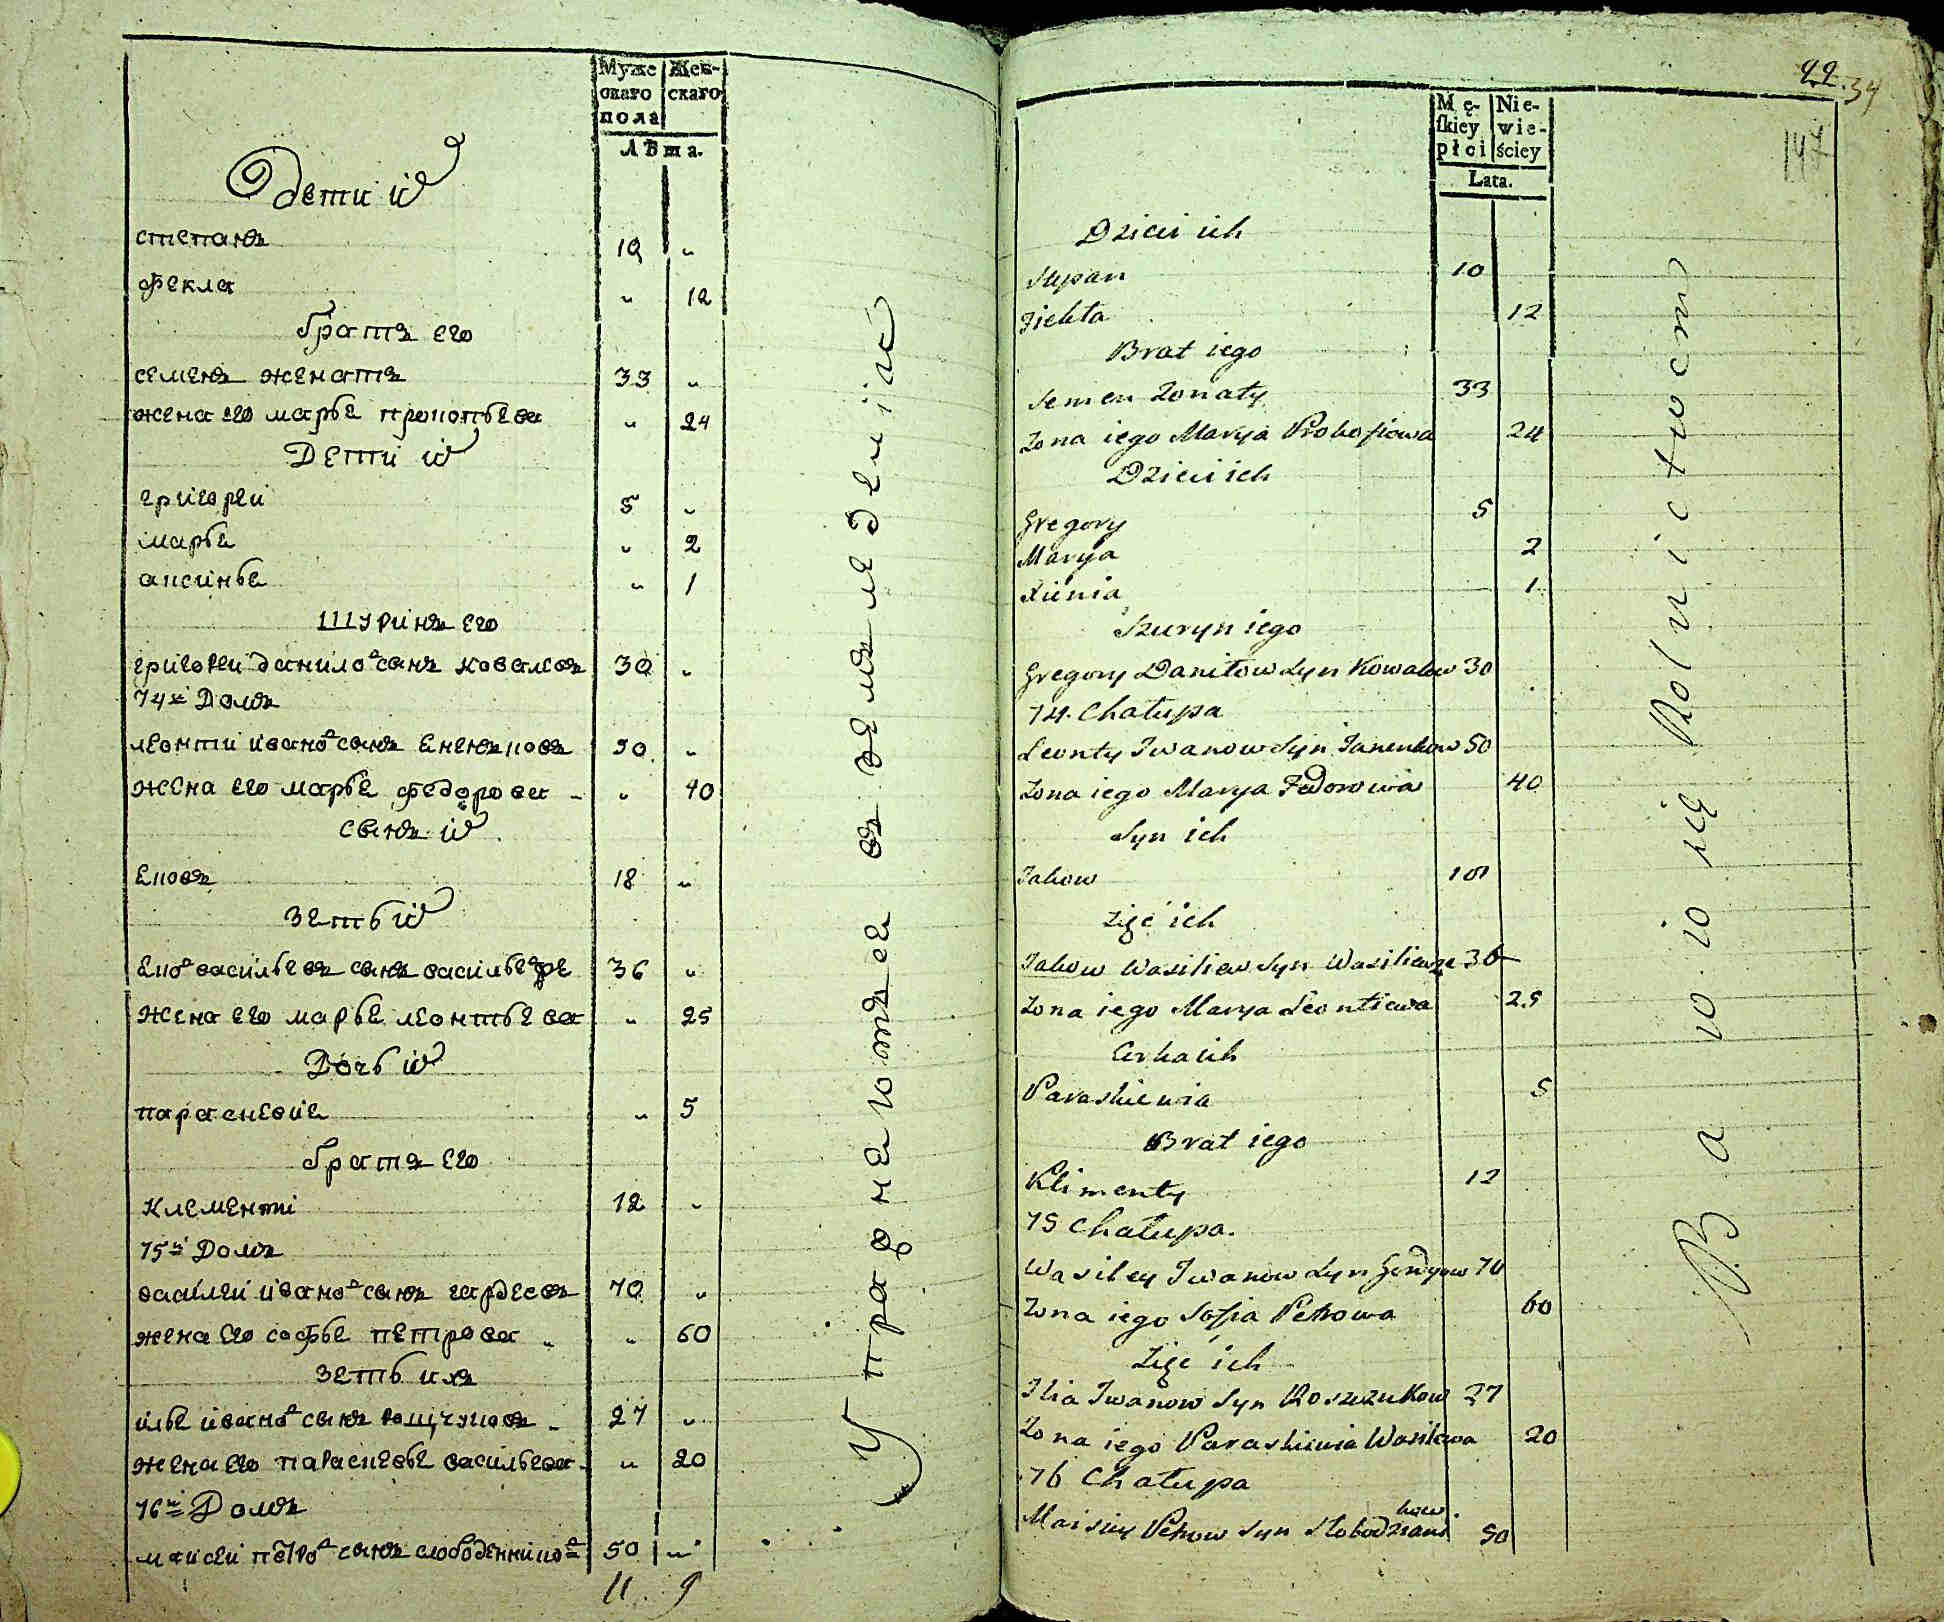 Муже
скаго
пола
Жен-
скаго
Лѣта.
Дети иⷯ
степанъ 10 „
фекла „ 12
братъ его
семенъ женатъ 33 „
жена его марья прокопьева „ 24
Дети иⷯ
григорей 5 „
марья „ 2
аксинья „ 1
Шуринъ его
григорей данилоⷡ сынъ ковалевъ 30 „
74й Домъ
леонти иваноⷡ сынъ 50 „
жена его марья федорова „ 40
сынъ иⷯ
яковъ 18 „
зять иⷯ
якоⷡ васильевъ сынъ 36 „
жена его марья леонтьева „ 25
Дочь иⷯ
параскевия „ 5
братъ его
Клементі 12 „
75й Домъ
василеи иваноⷡ сынъ гардеевъ 70 „
жена его софья петрова „ 60
зять ихъ
илья иваноⷡ сынъ 27 „
жена его параскевья васильева „ 20
76й Домъ
моисеи петроⷡ сынъ 50 „
11 . 9
Упражняютъся въ земледелiiс
42. 34
147
Mę-
ſkiey
płci
Nie-
wie-
ściey
Lata.
Dzieci ich
Stepan 10
Fiekła 12
Brat iego
Semen Zonaty 33
Zona iego Marya Prokofiewa 24
Dzieci ich
Gregory 5
Marya 2
Xiinia 1
Szuryn iego
Gregory Daniłow Syn Kowalow 30
74. Chałupa
Leonty Iwanow Syn Janenkow 50
Zona iego Marya Fedorowa 40
Syn ich
Jakow 18
Zięć ich
Jakow Wasiliew Syn 36
Zona iego Marya Leontiewa 25
Corka ich
Paraskiewia 5
Brat iego
Klimenty 12
75 Chałupa.
Wasiley Iwanow Syn 70
Zona iego Sofia Petrowa 60
Zięć ich
Ilia Iwanow Syn Roszczukow 27
Zona iego Paraskiewia Wasilewa 20
76 Chałupa
Moisiey Petrow Syn 50
Bawio się Rolnictwem